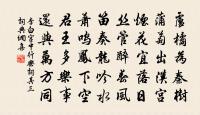 盧橘為秦樹
蒲桃出漢宮
煙花宜落日
絲管醉春風
笛奏龍吟水
簫鳴鳳下空
君王多樂事
還與萬方同
李白宮中行樂詞其三
詞典網集